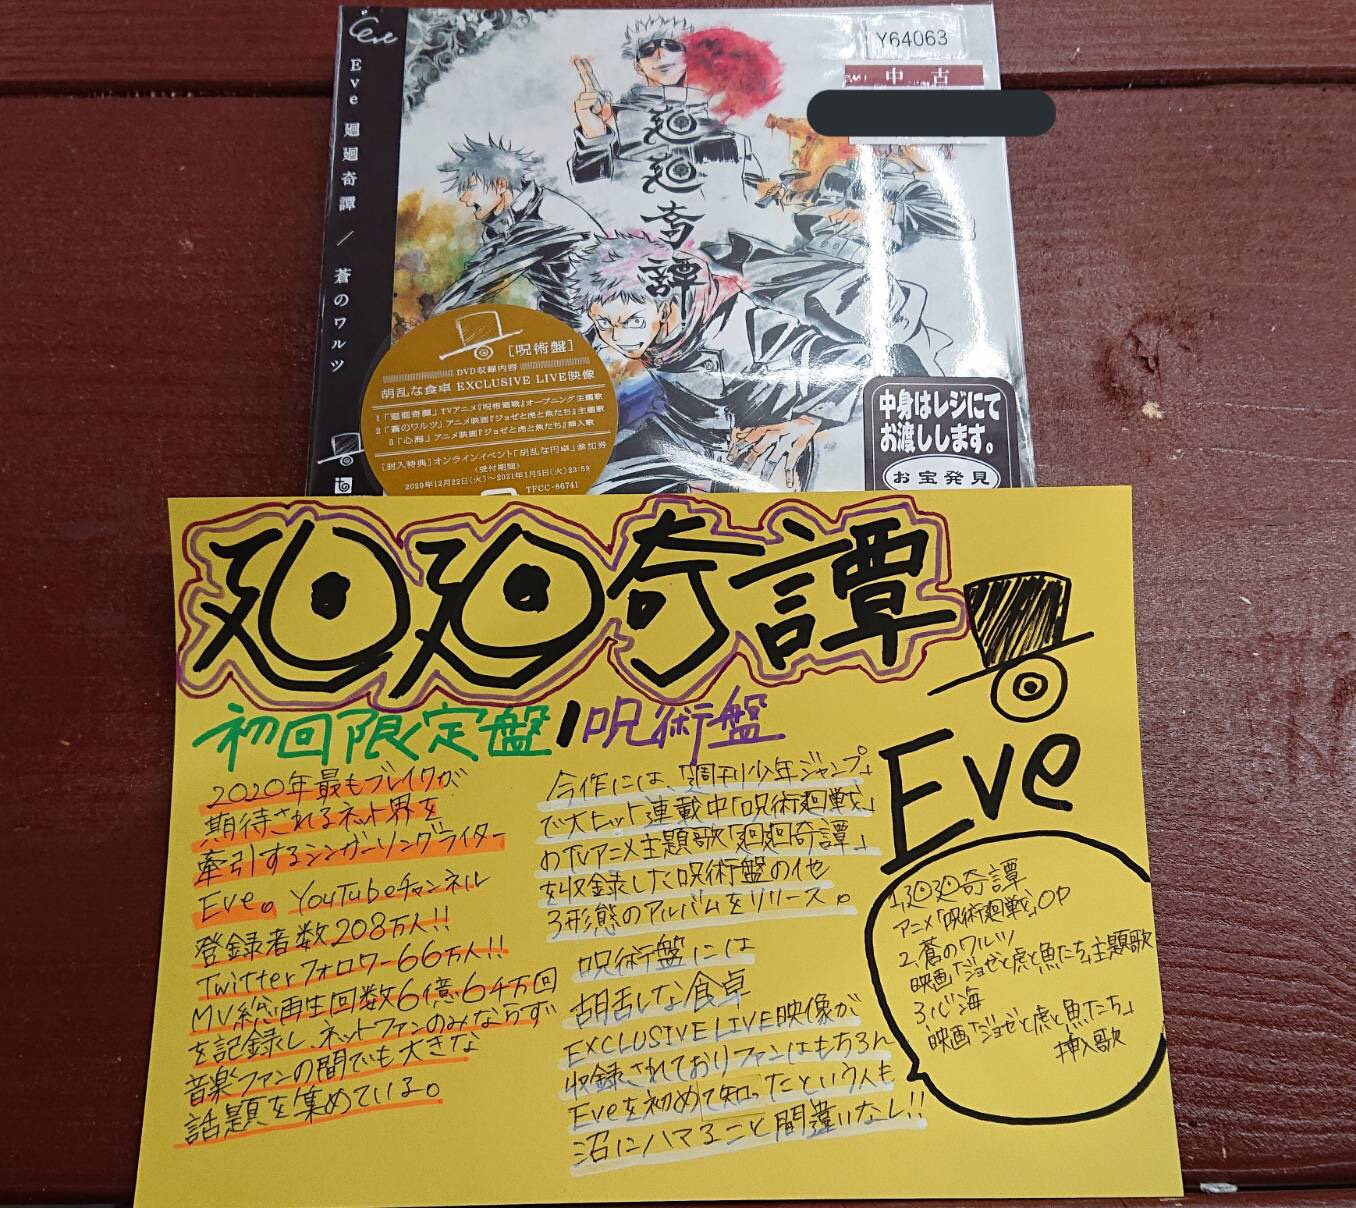 Eve
Eve 廻廻奇譚 / 蒼のワルツ
廻廻奇譚
Y64063
中古
[呪術盤]
DVD収録内容
胡乱な食卓 EXCLUSIVE LIVE映像
1「廻廻奇譚」TVアニメ『呪術廻戦』オープニング主題歌
2「蒼のワルツ」アニメ映画『ジョゼと虎と魚たち』主題歌
3「心海」アニメ映画『ジョゼと虎と魚たち』挿入歌
[封入特典]オンラインイベント「胡乱な円卓」参加券
〈受付期間〉
2020年12月22日(火)~2021年1月5日(火)23:59
TFCC-86741
中身はレジにて
お渡しします。
お宝発見
廻廻奇譚
初回限定盤/呪術盤
Eve
2020年最もブレイクが
期待されるネット界を
牽引するシンガーソングライター
Eve。YouTubeチャンネル
登録者数208万人!!
Twitterフォロワー66万人!!
MV総再生回数6億64万回
を記録し、ネットファンのみならず
音楽ファンの間でも大きな
話題を集めている。
今作には、「週刊少年ジャンプ」
で大ヒット連載中「呪術廻戦」
のTVアニメ主題歌「廻廻奇譚」
を収録した呪術盤の他
3形態のアルバムをリリース。
呪術盤には
胡乱な食卓
EXCLUSIVE LIVE映像が
収録されておりファンはもちろん
Eveを初めて知ったという人も
沼にハマること間違いなし!!
1.廻廻奇譚
アニメ「呪術廻戦」OP
2.蒼のワルツ
映画「ジョゼと虎と魚たち」主題歌
3.心海
映画「ジョゼと虎と魚たち」
挿入歌